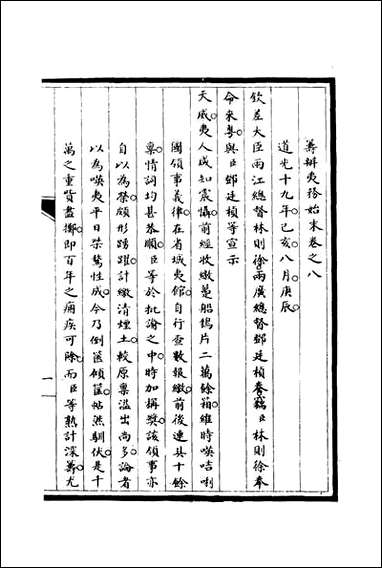 籌辦夷務始末卷之八
道光十九年己亥八月庚辰
欽差大臣兩江總督林則徐兩廣總督鄧廷楨奏竊臣林則徐奉
命來粵與臣鄧廷楨等宣示
天威夷人咸知震懾前經收繳躉船鴉片二萬餘箱維時𠸄咭唎
國領事義律在省城夷館自行查數報繳前後連具十餘
稟情詞均甚恭順臣等於批諭之中時加稱獎該領事亦
自以為榮頗形踴躍計繳清煙土較原稟溢出尚多論者
以為𠸄夷平日桀驁性成今乃倒篋傾筐帖然馴伏是千
萬之重貲盡擲即百年之痼疾可除而臣等熟計深籌尤
一